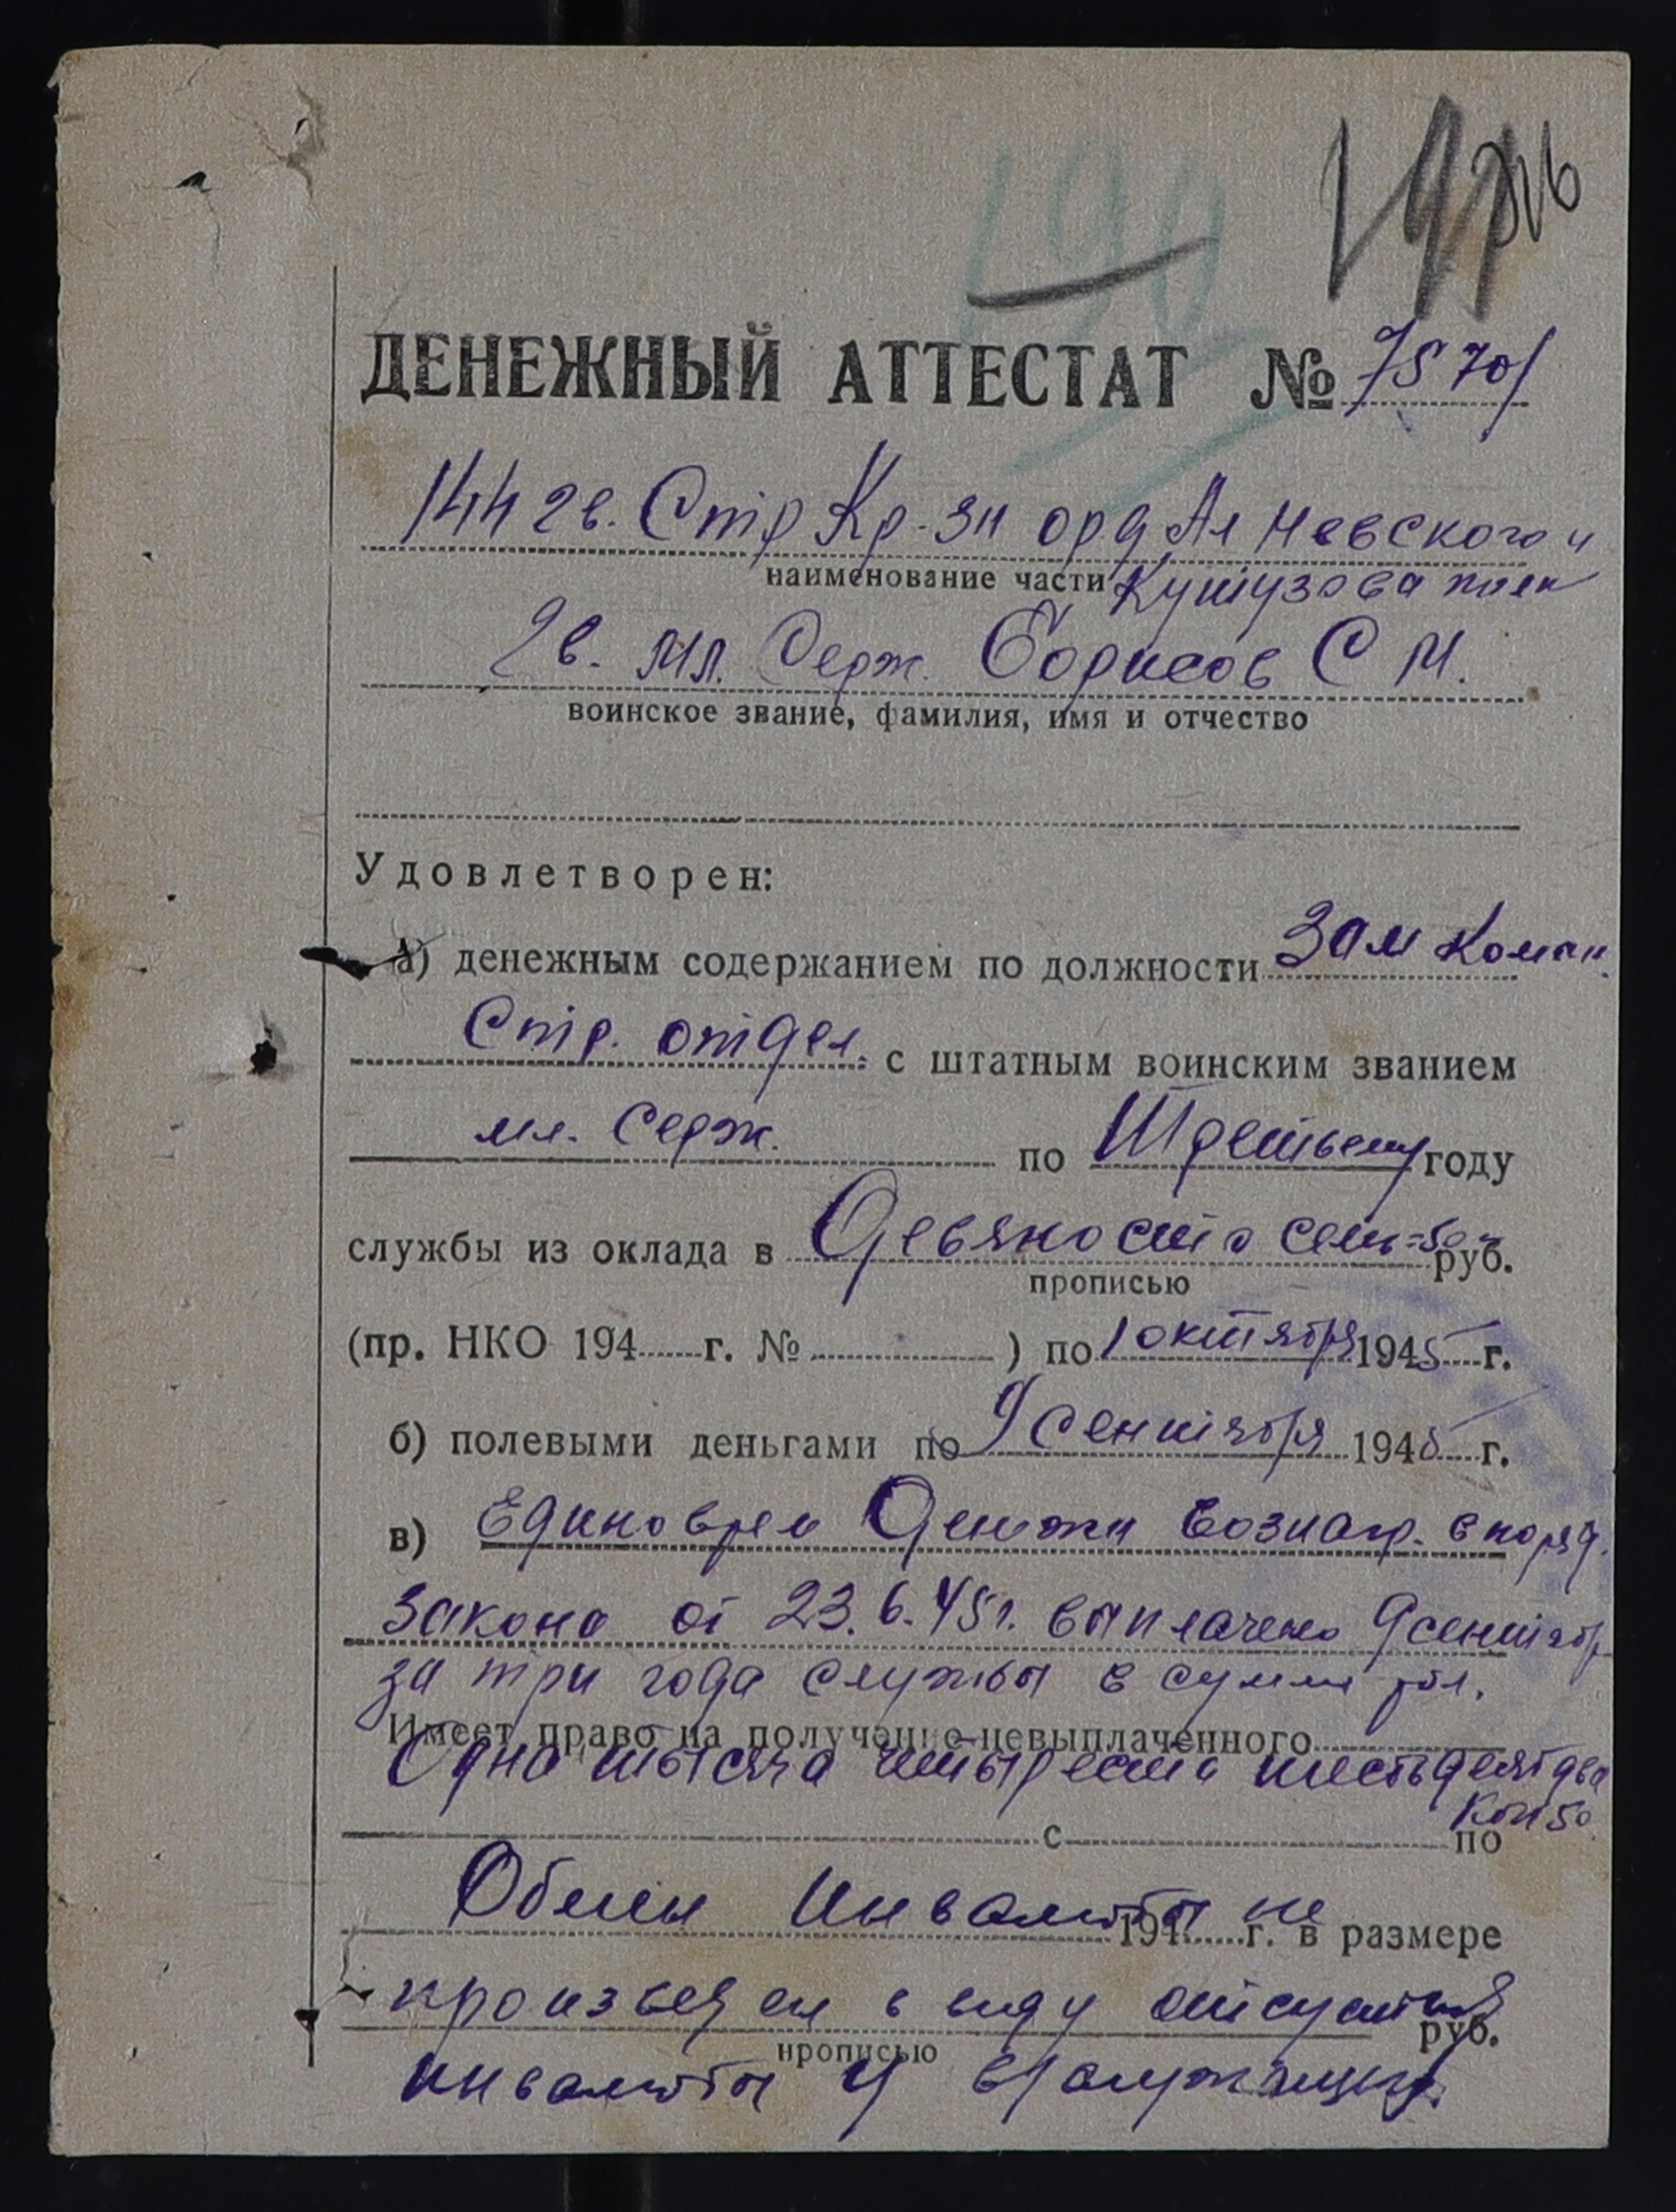 190
ДЕНЕЖНЫЙ АТТЕСТАТ № 75701
144 гв. Стр Кр-Зн орд Ал Невского и
наименование части Кутузова полк
Гв. Мл. Серж. Борисов С М.
воинское звание, фамилия, имя и отчество
Удовлетворен:
а) денежным содержанием по должности Зам Коман.
Стр. отдел. с штатным воинским званием
мл. Серж. по Третьему году
службы из оклада в Девяносто семь=50 руб.
прописью
(пр. НКО 194 г. № ) по 1 октября 1945 г.
б) полевыми деньгами по 9 сентября 1945 г.
в) Единоврем Денежн вознагр. в поряд.
закона от 23.6.45г. выплачено 9 сентябр
за три года службы в сумме
Имеет право на получение невыплаченного
Одна тысяча четыреста шестьдесят два
коп 50
с по
Обмен Инвалюты не
194 г. в размере
произведен в виду отсутствия
руб.
прописью
инвалюты у